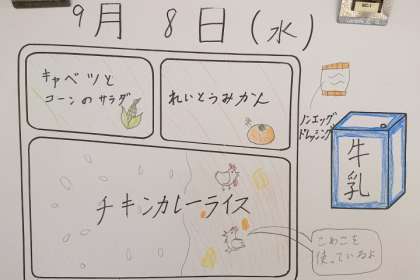 9月 8日(水)
キャベツと
コーンのサラダ
れいとうみかん
ノンエッグ
ドレッシング
牛乳
チキンカレーライス
こめこを
使っているよ